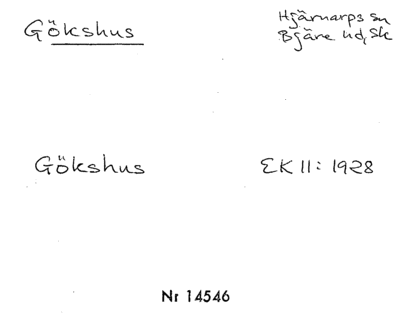 Gökshus
Hjärnarps sn
Bjäre hd, Sk
Gökshus
EK II: 1928
Nr 14546